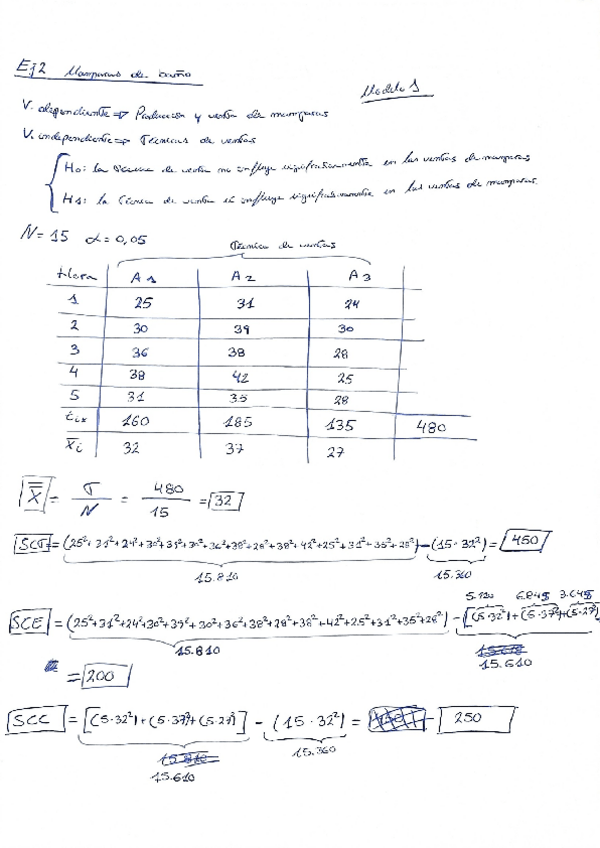 Ej2 Mamparas de baño
Modelo 1
V. dependiente => Producción y venta de mamparas
V. independiente => Técnicas de ventas
H0: la técnica de venta no influye significativamente en las ventas de mamparas
H1: la técnica de venta sí influye significativamente en las ventas de mamparas.
N = 15 α = 0,05
Técnica de ventas
Hora A1 A2 A3
1 25 31 24
2 30 39 30
3 36 38 28
4 38 42 25
5 31 35 28
160 185 135 480
X̄i 32 37 27
X̿ = T/N = 480/15 = 32
SCT = (25²+31²+24²+30²+39²+30²+36²+38²+28²+38²+42²+25²+31²+35²+28²) - (15·32²) = 450
15.810 15.360
5.120 6.845 3.645
SCE = (25²+31²+24²+30²+39²+30²+36²+38²+28²+38²+42²+25²+31²+35²+28²) - [(5·32²)+(5·37²)+(5·27²)
15.810 15.610
= 200
SCC = [(5·32²)+(5·37²)+(5·27²)] - (15·32²) = 250
15.360
15.610